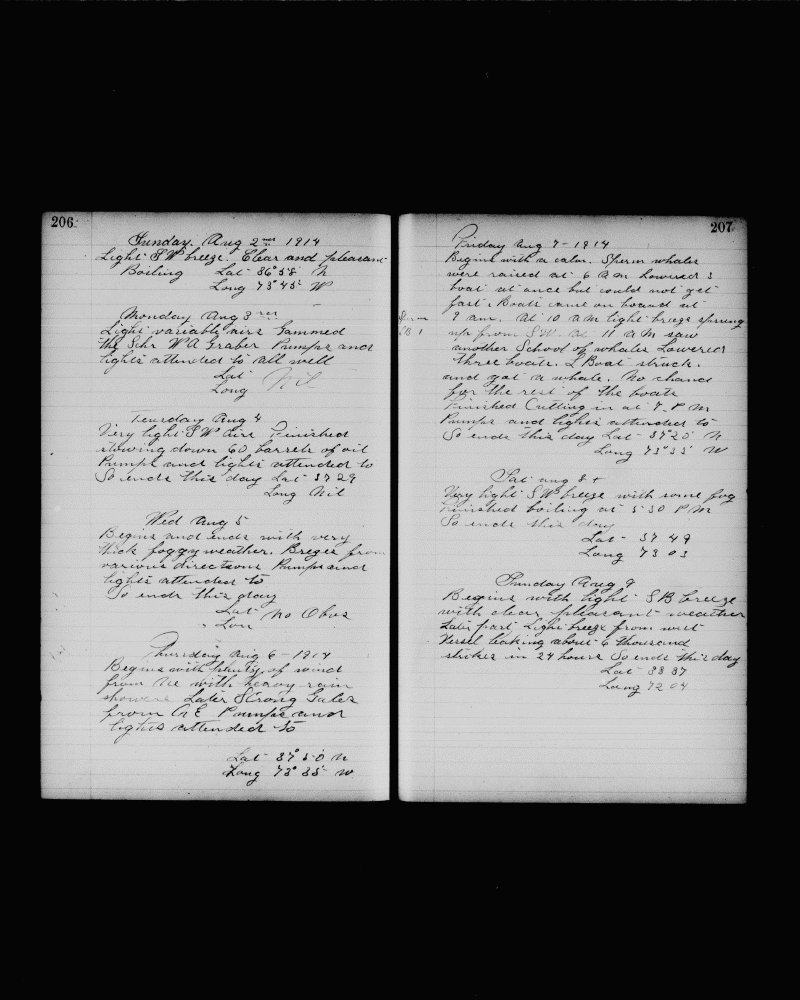 206
Sunday. Aug 2nd 1914
Light SW breeze. Clear and pleasant
Boiling Lat 36° 58' N
Long 73° 45' W
Monday Aug 3rd
Light variable airs Gammed
the Schr W A Graber Pumps and
lights attended to all well
Lat
Long Nil
Tuesday Aug 4
Very light SW airs Finished
stowing down 60 barrels of oil
Pumps and lights attended to
So ends this day Lat 37 29
Long Nil
Wed Aug 5
Begins and ends with very
thick foggy weather. Brezes from
various directions Pumps and
lights attended to
So ends this day
Lat No Obus
Lon
Thursday Aug 6 - 1914
Begins with plenty of wind
from NE with heavy rain
showers Later Strong Gales
from NE Pumps and
lights attended to
Lat 37° 50 N
Long 73° 35' W
207
Friday Aug 7 - 1914
Begins with a calm. Sperm whales
were raised at 6 a m Lowered 3
boat at once but could not get
fast. Boats came on board at
9 am. At 10 a m light breeze sprung
up from SW. At 11 a M saw
another School of whales Lowered
three boats. L Boat struck.
and got a whale. No chance
for the rest of the boats
Finished Cutting in at 7. P M
Pumps and lights attended to
So ends this day Lat 37° 20' N
Long 73° 35' W
Sperm
LB 1
Sat Aug 8
Very light SW breeze with some fog
Finished boiling at 5 30 P M
So ends this day
Lat - 37 49
Long 73 03
Sunday Aug 9
Begins with light SB breeze
with clear pleasant weather
Later part Light breeze from west
Vessel leaking about 6 thousand
strikes in 24 hours So ends this day
Lat 38 37
Loung 72 04